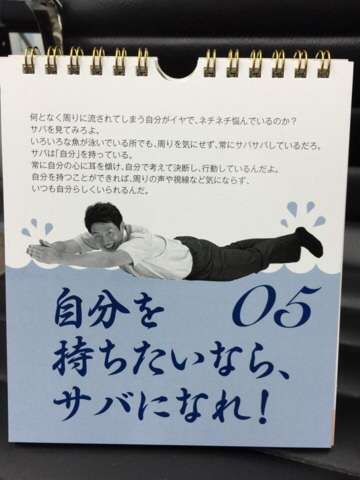 何となく周りに流されてしまう自分がイヤで、ネチネチ悩んでいるのか？
サバを見てみろよ。
いろいろな魚が泳いでいる所でも、周りを気にせず、常にサバサバしているだろ。
サバは「自分」を持っている。
常に自分の心に耳を傾け、自分で考えて決断し、行動しているんだよ。
自分を持つことができれば、周りの声や視線など気にならず、
いつも自分らしくいられるんだ。
自分を
05
持ちたいなら、
サバになれ！